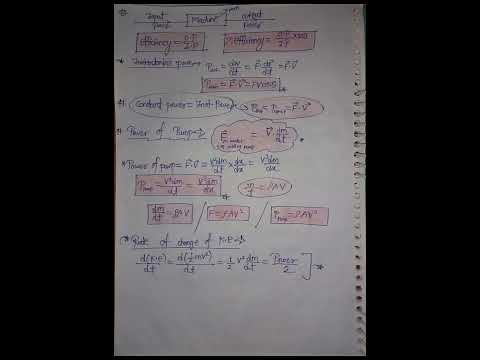 Input Machine output
power power
efficiency = O.P/I.P efficiency = O.P/I.P × 100
Pins. = dw/dt = F⃗.dr⃗/dt = F⃗.V⃗
Pins. = F⃗.V⃗ = FV cosθ
Constant power = Inst. Power Pav = Pinst = F⃗.V⃗
Power of Pump F⃗ = V⃗ dm/dt
Power of pump = F⃗.V⃗ = V² dm/dt × dx/dx = V³ dm/dx
Ppump = V² dm/dt = V³ dm/dx = ρAV
dm/dt = ρAV / F = ρAV² / Ppump = ρAV³
Rate of change of K.E
d(K.E)/dt = d(½mv²)/dt = ½ V² dm/dt = Power/2